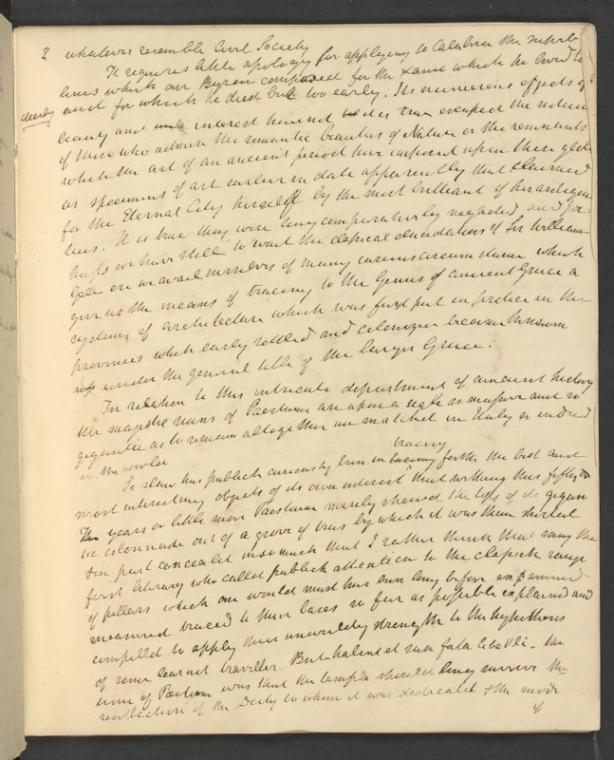 2 whatever resemble Civil Society
It requires little apology for applying to Calabria the
lines which our Byron composed for the land which he loved so
dearly and for which he died but too early. Its numerous objects of
beauty and interest have not escaped the notice
of those who admire the romantic beauties of Nature or the remnants
which the art of an ancient period have imposed upon these
as specimens of art earlier in date apparently than claimed
for the Eternal City herself by the most brilliant of her antiqua-
ries. It is true they were long comparatively neglected and per-
haps we have still to want the classical elucidations of Sir William
Gell or we avail ourselves of many circumstances which
give us the means of tracing to the Genius of ancient Greece a
system of architecture which was first put in practice in the
provinces which early settled and colonized became known
under the general title of the larger Greece.
In relation to this intricate department of ancient history
the majestic ruins of Paestum are upon a scale so massive and so
gigantic as to remain altogether unmatched in Italy or indeed
in the world
tracing
So slow has publick curiosity been in forth the best and
most interesting objects of its own interest that within this fifty
years or little more Paestum merely shewed the tops of its gigan
tic colonnade out of a grove of trees by which it was then
in part concealed insomuch that I rather think that may the
first literary who called publick attention to the classick range
of pillars which one would must have been long before examined
measured traced to their bases so far as possible explained and
compelled to apply their unwieldy strength to the hypothesis
of some learned traveller. But habent et sua fata libelli - the
of Paestum was that the temple should long survive the
recollection of the Deity to whom it was dedicated & the mode